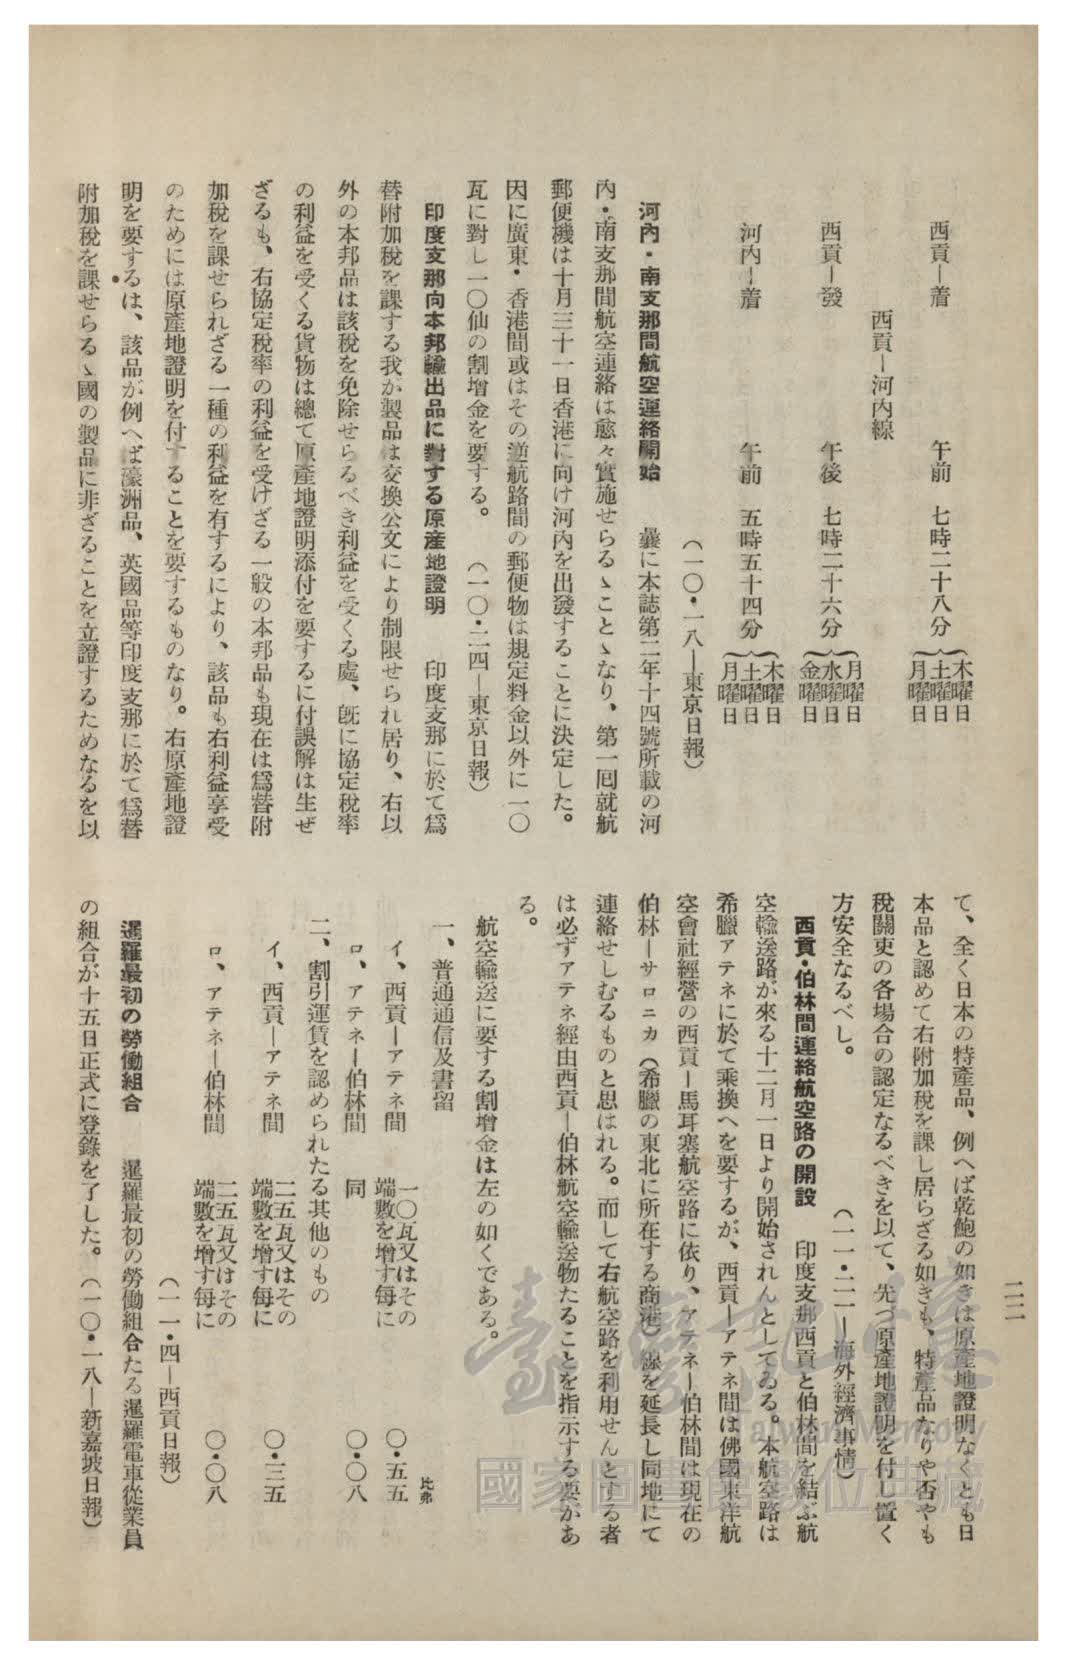 西貢―着　午前　七時二十八分　木曜日 土曜日 月曜日
西貢―河内線
西貢―發　午後　七時二十六分　月曜日 水曜日 金曜日
河内―着　午前　五時五十四分　木曜日 土曜日 月曜日
（一〇・一八―東京日報）
河內・南支那間航空連絡開始　曩に本誌第二年十四號所載の河
內・南支那間航空連絡は愈々實施せらるゝことゝなり、第一囘就航
郵便機は十月三十一日香港に向け河內を出發することに決定した。
因に廣東・香港間或はその逆航路間の郵便物は規定料金以外に一〇
瓦に對し一〇仙の割增金を要する。　（一〇・二四―東京日報）
印度支那向本邦輸出品に對する原産地證明　印度支那に於て爲
替附加稅を課する我が製品は交換公文により制限せられ居り、右以
外の本邦品は該稅を免除せらるべき利益を受くる處、旣に協定稅率
の利益を受くる貨物は總て原産地證明添付を要するに付誤解は生ぜ
ざるも、右協定稅率の利益を受けざる一般の本邦品も現在は爲替附
加稅を課せられざる一種の利益を有するにより、該品も右利益享受
のためには原產地證明を付することを要するものなり。右原產地證
明を要するは、該品が例へば濠洲品、英國品等印度支那に於て爲替
附加稅を課せらるゝ國の製品に非ざることを立證するためなるを以
二二
て、全く日本の特產品、例へば乾鮑の如きは原產地證明なくとも日
本品と認めて右附加稅を課し居らざる如きも、特產品なりや否やも
稅關吏の各場合の認定なるべきを以て、先づ原產地證明を付し置く
方安全なるべし。　（一一・二一―海外經濟事情）
西貢・伯林間連絡航空路の開設　印度支那西貢と伯林間を結ぶ航
空輸送路が來る十二月一日より開始されんとしてゐる。本航空路は
希臘アテネに於て乘換へを要するが、西貢―アテネ間は佛國東洋航
空會社經營の西貢―馬耳塞航空路に依り、アテネ―伯林間は現在の
伯林―サロニカ（希臘の東北に所在する商港）線を延長し同地にて
連絡せしむるものと思はれる。而して右航空路を利用せんとする者
は必ずアテネ經由西貢―伯林航空輸送物たることを指示する要があ
る。
航空輸送に要する割增金は左の如くである。
一、普通通信及書留　比弗
イ、西貢―アテネ間　一〇瓦又はその端數を增す每に　〇・五五
ロ、アテネ―伯林間　同　〇・〇八
二、割引運賃を認められたる其他のもの
イ、西貢―アテネ間　二五瓦又はその端數を增す每に　〇・三五
ロ、アテネ―伯林間　二五瓦又はその端數を增す每に　〇・〇八
（一一・四―西貢日報）
暹羅最初の勞働組合　暹羅最初の勞働組合たる暹羅電車從業員
の組合が十五日正式に登錄を了した。（一〇・一八―新嘉坡日報）
臺灣記憶
Taiwan Memory
國家圖書館數位典藏